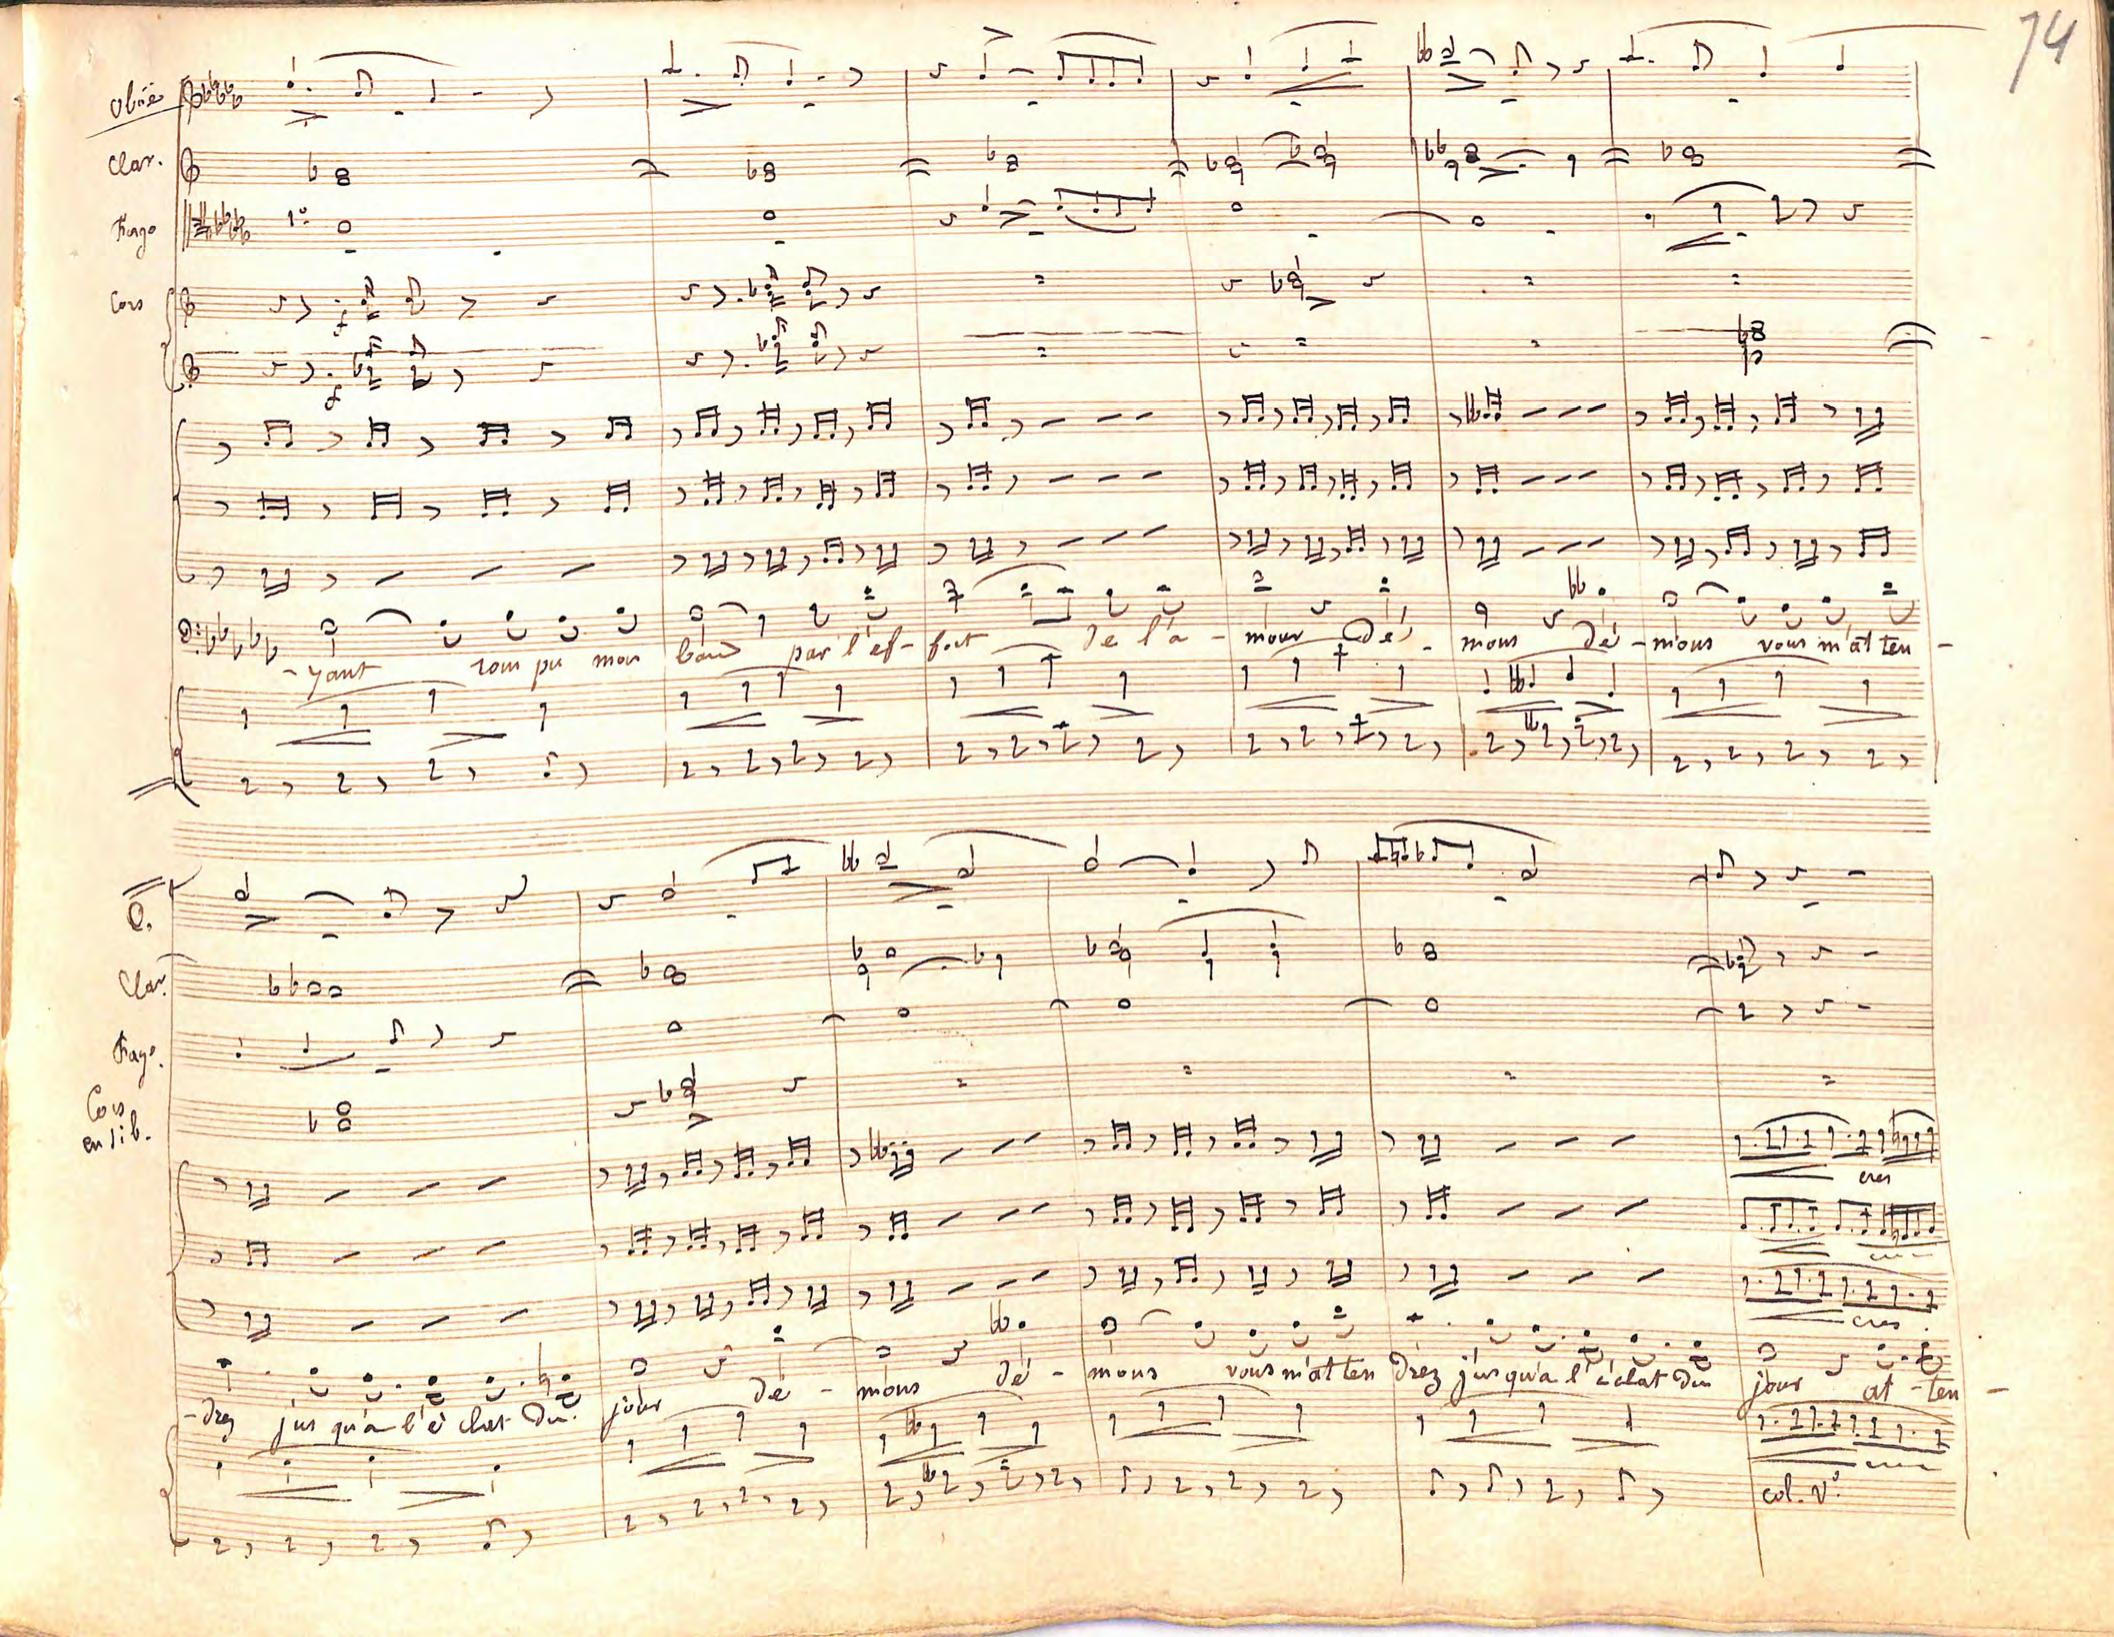 74
Oboé
Clar.
Fago
1º
Cors
f
f
- yant rom pu mon ban par l'ef - fort de l'a - mour Dé - mons dé - mons vous m'at ten -
O.
Clar.
Fago.
Cors
en si b.
cres
cres
- drez jus qu'a l'é clat du jour dé - mons dé - mons vous m'at ten drez jus qu'a l'éclat du jour at - ten -
col. Vº